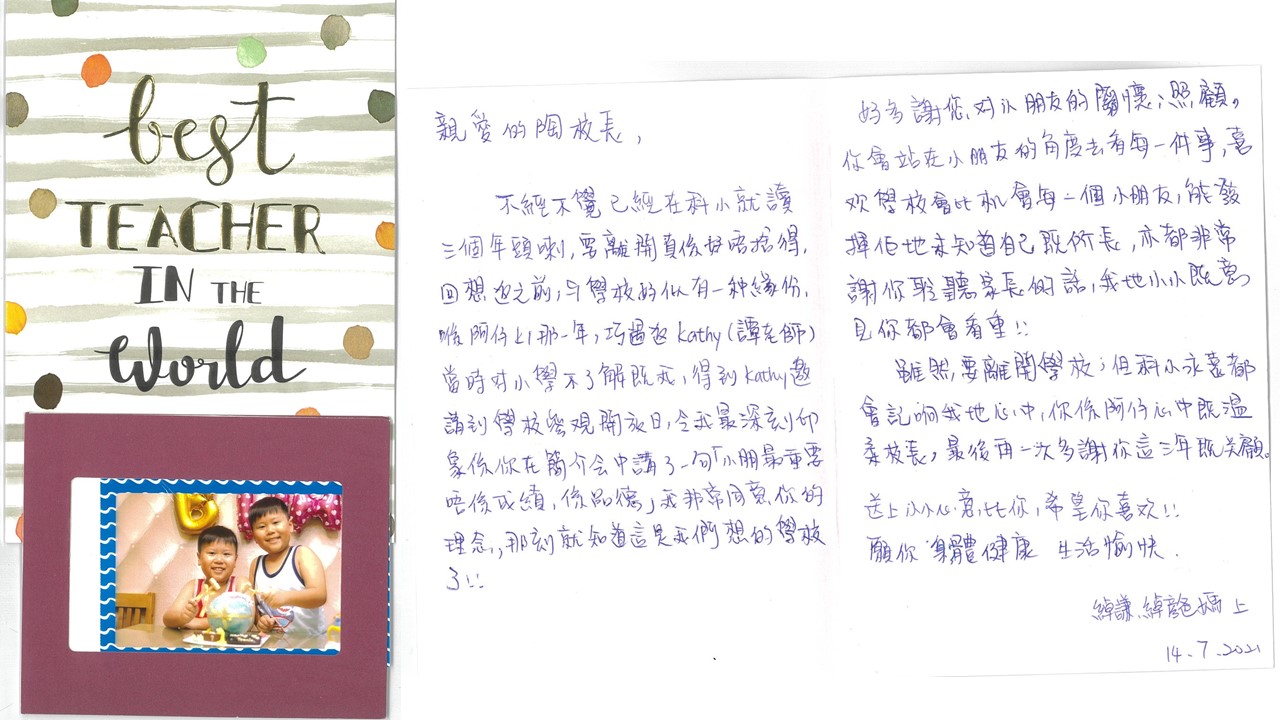 best
TEACHER
IN THE
World
親愛的陶校長,
不經不覺已經在科小就讀
三個年頭喇,要離開真係好唔捨得,
回想返之前,与學校好似有一种緣份,
喺阿仔K1那一年,巧遇返Kathy(譚老師)
當時对小學不了解既我,得到Kathy邀
請到學校參观開放日,令我最深刻印
象係你在簡介会中講了一句「小朋最重要
唔係成績,係品德」我非常同意你的
理念,那刻就知道這是我們想的學校
了!!
好多謝您对小朋友的關懷、照顧。
你會站在小朋友的角度去看每一件事,喜
欢學校會比机會每一個小朋友,能發
揮佢地未知道自己既所長,亦都非常
謝你聆聽家長的話,我地小小既意
見你都會看重!!
雖然要離開學校;但科小永遠都
會記响我地心中,你係阿仔心中既温
柔校長,最後再一次多謝你這三年既关顧。
送上小小心意比你,希望你喜欢!!
願你身體健康 生活愉快.
綽謙,綽 媽上
14.7.2021